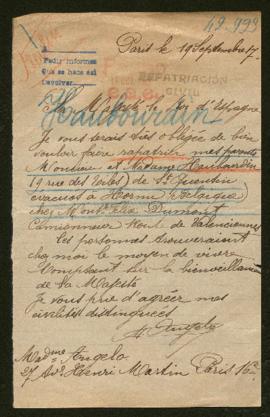 49.993
Paris le 19 Septembre 17.
Pedir informes
Que se hace así
Devolver
REPATRIACIÓN
CIVIL
Haubourdin
Sa Majesté le Roi d'Espagne
Je vous serais très obligée de bien
vouloir faire rapatrier mes parents
Monsieur et Madame Haubourdin
19 rue des Toiles de St Quentin
évacués à Hornu Belgique
chez Dumont
Camionneur route de Valenciennes
Ces personnes trouveraient
chez moi le moyen de vivre
Comptant sur la bienveillance
de Sa Majesté
Je vous prie d'agréer mes
civilités distinguées
Angelo
Madame Angelo
27 Ave Henri Martin Paris 16e